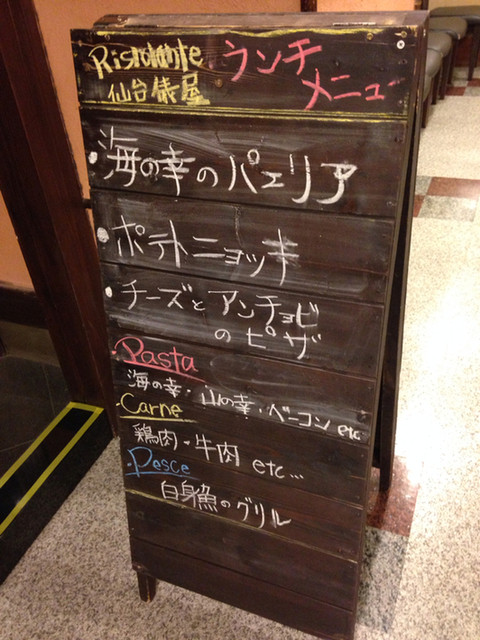 Ristorante ランチ
仙台俵屋 メニュー
・海の幸のパエリア
・ポテトニョッキ
・チーズとアンチョビ
のピザ
・Pasta
海の幸・山の幸・ベーコン etc
・Carne
鶏肉・牛肉 etc...
・Pesce
白身魚のグリル